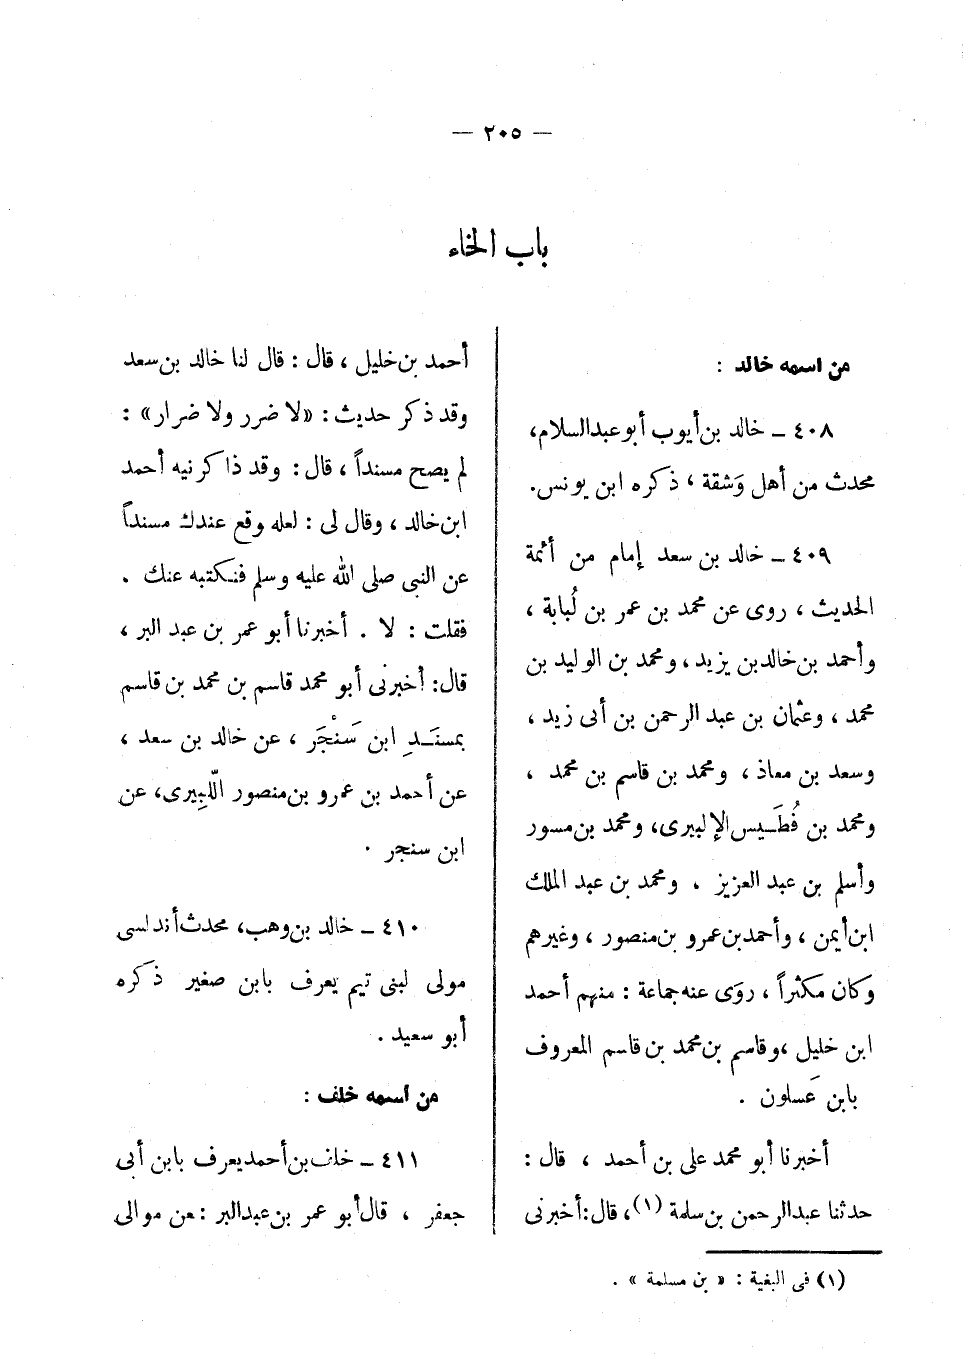 — ٢٠٥ —
باب الخاء
من اسمه خالد :
٤٠٨ – خالد بن أيوب أبو عبد السلام،
محدث من أهل وَشقة ، ذكره ابن يونس.
٤٠٩ – خالد بن سعد إمام من أئمة
الحديث ، روى عن محمد بن عمر بن لُبابة ،
وأحمد بن خالد بن يزيد ، ومحمد بن الوليد بن
محمد ، وعثمان بن عبد الرحمن بن أبى زيد ،
وسعد بن معاذ ، ومحمد بن قاسم بن محمد ،
ومحمد بن فُطَـيس الإلبيرى، ومحمد بن مسور
وأسلم بن عبد العزيز . ومحمد بن عبد الملك
ابن أيمن ، وأحمد بن عمرو بن منصور ، وغيرهم
وكان مكثراً ، روَى عنه جماعة : منهم أحمد
ابن خليل ،وقاسم بن محمد بن قاسم المعروف
بابن عَسلون .
أخبرنا أبو محمد على بن أحمد ، قال :
حدثنا عبد الرحمن بن سلمة (١)، قال: أخبرنى
أحمد بن خليل ، قال : قال لنا خالد بن سعد
وقد ذكر حديث : «لا ضرر ولا ضرار» :
لم يصح مسنداً ، قال : وقد ذاكرنيه أحمد
ابن خالد ، وقال لى : لعله وقع عندك مسنداً
عن النبى صلى الله عليه وسلم فنـكتبه عنك .
فقلت : لا . أخبرنا أبو عمر بن عبد البر ،
قال: أخبرنى أبو محمد قاسم بن محمد بن قاسم
بمسنَـدِ ابن سَنْجَر ، عن خالد بن سعد ،
عن أحمد بن عمرو بن منصور اللّبِيرى، عن
ابن سنجر .
٤١٠ – خالد بن وهب، محدث أندلسى
مولى لبنى تيم يعرف بابن صغير ذكره
أبو سعيد .
من اسمه خلف :
٤١١ – خلف بن أحمد يعرف بابن أبى
جعفر ، قال أبو عمر بن عبد البر : من موالى
(١) فى البغية : « بن مسلمة » .